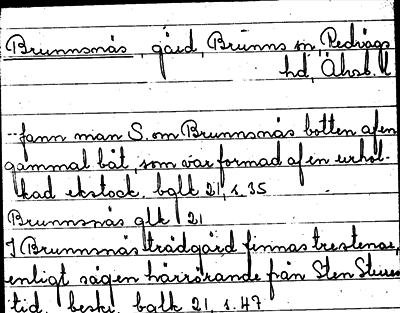 Brunnsnäs, gård, Brunns sn, Redvägs
hd, Älvsb. l
--fann man S. om Brunnsnäs botten af en
gammal båt, som var formad af en urhol-
kad ekstock. bglk 21, s. 35
Brunnsnäs glk 21
I Brunnsnäs trädgård finnas tre stenar,
enligt sägen härrörande från Sten Stures
tid. beskr. bglk 21, s. 47